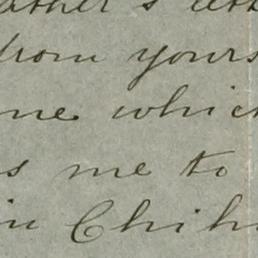 ather's lett
from yours
me which
s me to
in Chih